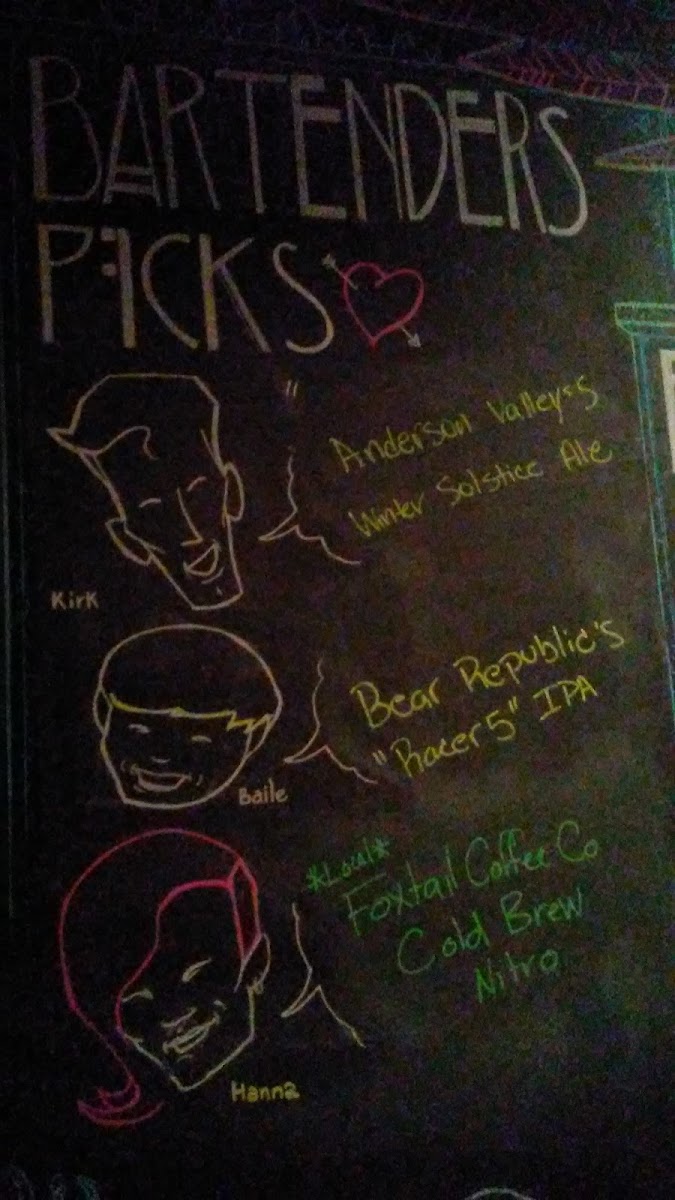 BARTENDERS
PICKS
"
Anderson Valley's
Winter Solstice Ale
Kirk
Bear Republic's
"Racer 5" IPA
Baile
*Local*
Foxtail Coffee Co
Cold Brew
Nitro
Hanna